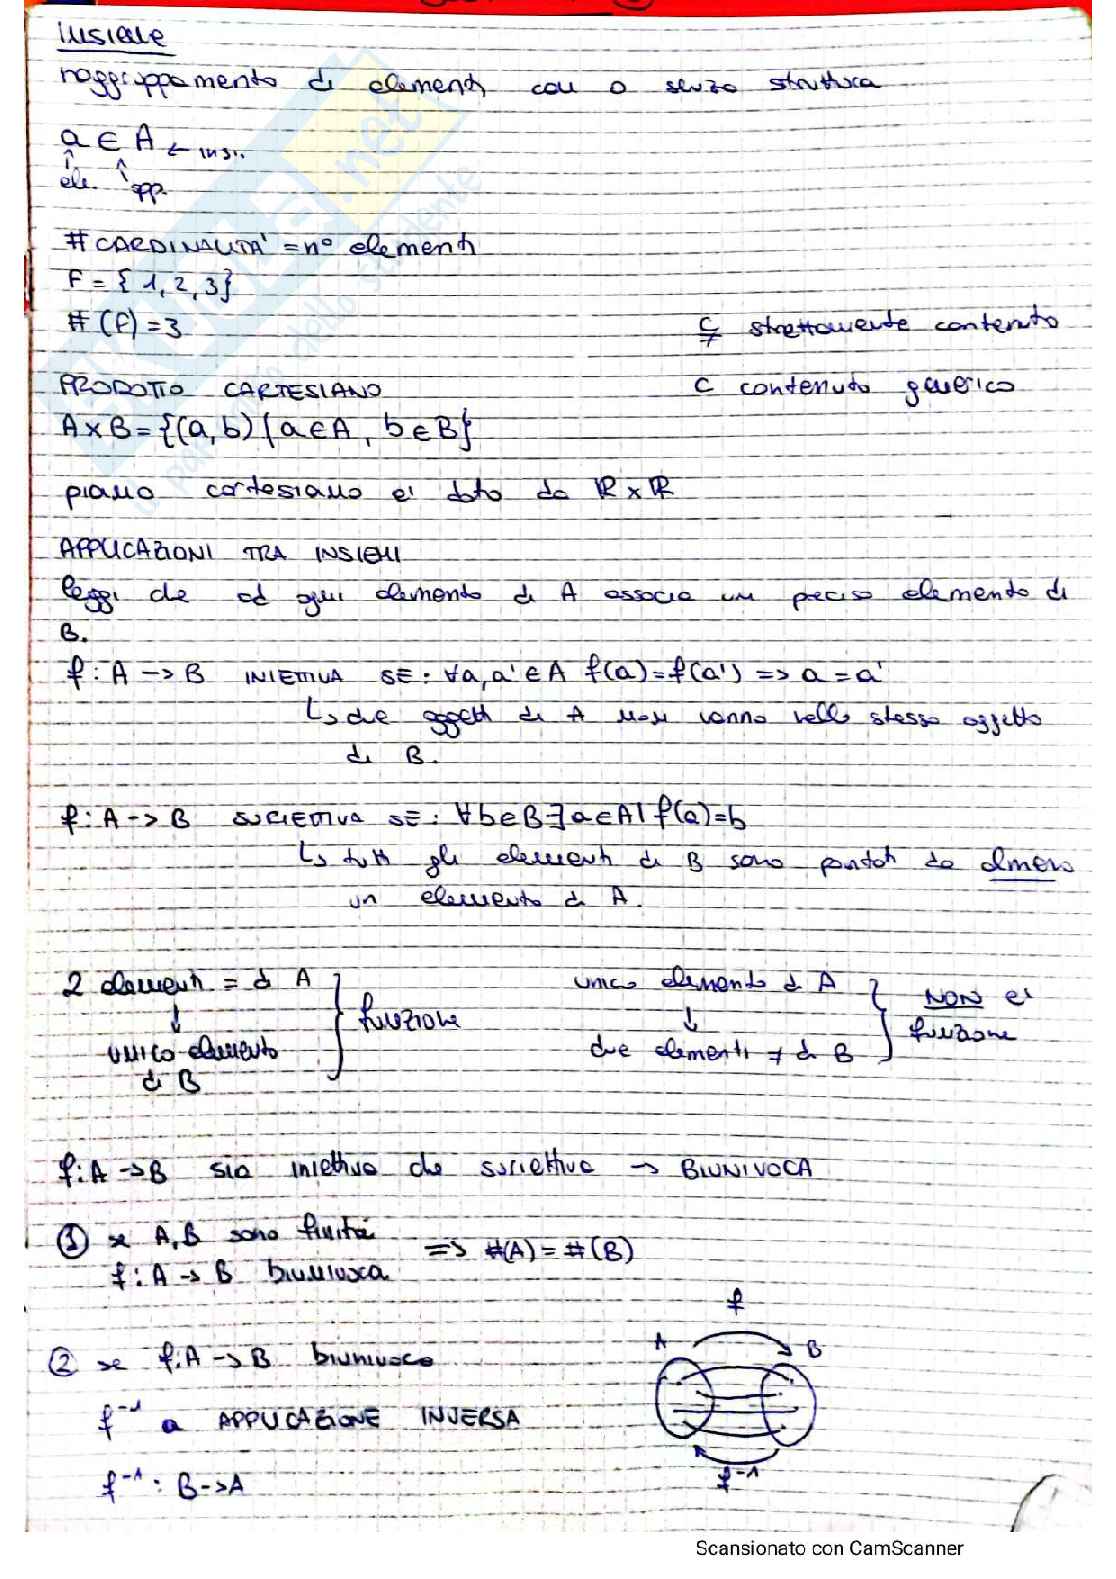 INSIEME
raggruppamento di elementi con o senza struttura
a ∈ A ← insi.
ele. app.
# CARDINALITA' = n° elementi
F = { 1, 2, 3}
# (F) = 3
⊊ strettamente contenuto
PRODOTTO CARTESIANO
⊂ contenuto generico
A x B = {(a, b) | a ∈ A, b ∈ B}
piano cartesiano e' dato da ℝ x ℝ
APPLICAZIONI TRA INSIEMI
leggi che ad ogni elemento di A associa un preciso elemento di
B.
f: A -> B INIETTIVA SE: ∀a, a' ∈ A f(a) = f(a') => a = a'
↳ due oggetti di A non vanno nello stesso oggetto
di B.
f: A -> B SURIETTIVA SE: ∀b ∈ B ∃ a ∈ A | f(a) = b
↳ tutti gli elementi di B sono puntati da almeno
un elemento di A.
2 elementi = di A
↓
unico elemento
di B
} funzione
unico elemento di A
↓
due elementi ≠ di B
} NON e'
funzione
f: A -> B sia iniettiva che suriettiva → BIUNIVOCA
① se A, B sono finiti
f: A -> B biunivoca
=> #(A) = #(B)
② se f: A -> B biunivoca
f⁻¹ a APPLICAZIONE INVERSA
f⁻¹: B -> A
f
A B
f⁻¹
Scansionato con CamScanner